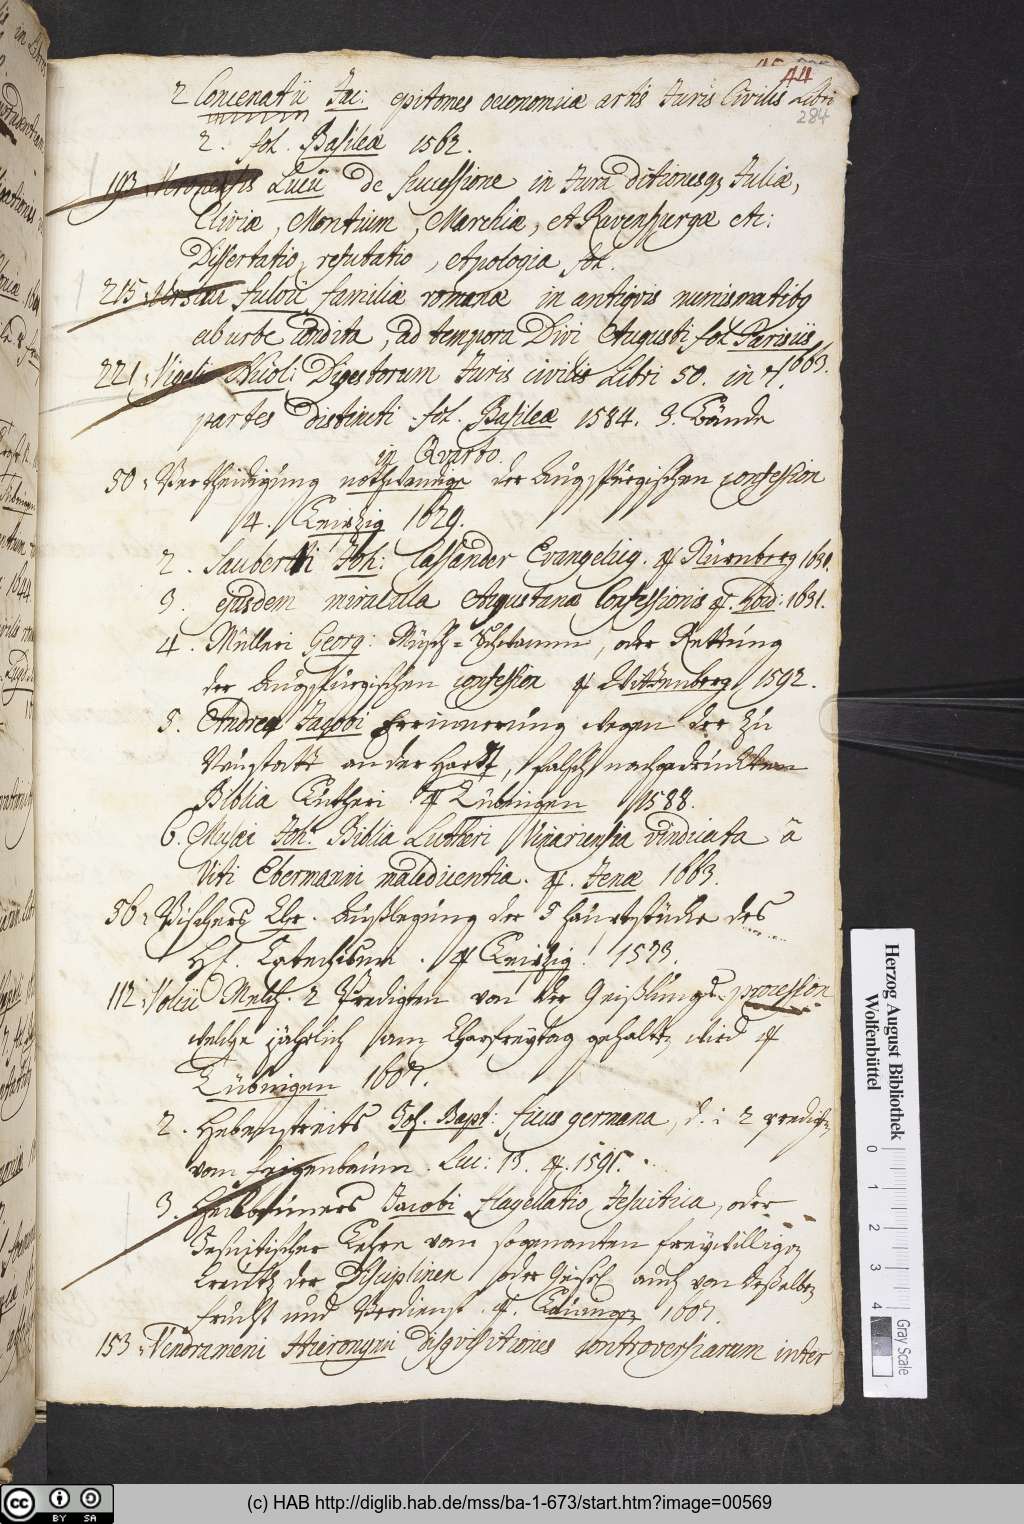 44
284
2 Concenatii Jac: epitomes oeconomicae artis Juris Civilis Libri
2. fol. Basileae 1562.
193 Veronensis Lucii de Successione in Jura ditionesq3 Juliae,
Cliviae, Montium, Marchiae, et Ravenspurgae etc:
Dissertatio, refutatio, Apologia fol.
215 Ursini Fulvii familiae romanae in antiqvis numismatibq
ab urbe condita, ad tempora Divi Augusti fol Parisiis
1663.
221 Vigelii Nicol: Digestorum Juris civilis Libri 50. in 7.
partes distincti. fol. Basileae 1584. 3. Bände
in Qvarto.
50 Vertheidigung nothwendige der Augspurgischen confession
4. Leipzig 1629.
2. Sauberti Joh: Cassander Evangelicq. 4 Nürnberg 1631.
3. ejusdem miracula Augustanae Confessionis 4. ibid: 1631.
4. Mülleri Georg: Müsch-Schwamm, oder Rettung
der Augspurgischen confession 4 Wittenberg 1592.
5. Andreae Jacobi Errinnerung wegen der zu
Neustatt an der Hardt, falsch nachgedruckten
Biblia Lutheri 4 Tübingen 1588.
6. Musaei Joh: Biblia Lutheri Vinariensia vindicata à
Viti Ebermanni maledicentia. 4. Jenae 1663.
56 Vischers Chr. Außlegung der 5 Hauptstücke des
Hl. Catechismi. 4 Leipzig 1573.
112 Volcii Melch. 2 Predigten von der Geißlungs-procession
welche jährlich am Charfreytag gehalten wird 4
Tübingen 1607.
2. Hebenstreits Joh. Bapt: ficus germana, d. i. 2 predigten
vom feigenbaum. Luc: 13. 4. 1591.
3. Heilbrunners Jacobi flagellatio Jesuitica, oder
Jesuitischer Lehre vom sogenanten freywilligen
Creutz der Disciplinen oder Geisel auch von deßelben
frucht und Verdienst. 4. Lauingen 1607.
153 Vendrameni Hieronymi Disqvisitiones Controversiarum inter
Herzog August Bibliothek
Wolfenbüttel
0 1 2 3 4
Gray Scale
cc BY SA
(c) HAB http://diglib.hab.de/mss/ba-1-673/start.htm?image=00569